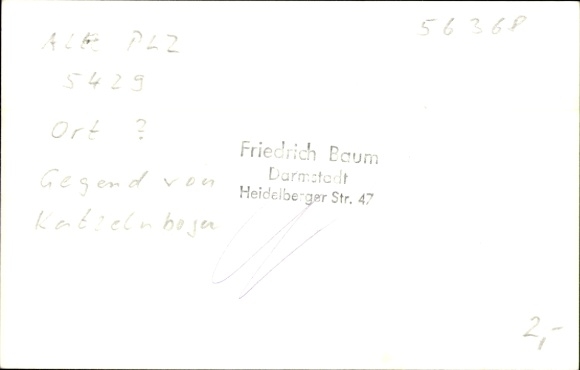 56368
Alte PLZ
5429
Ort ?
Gegend von
Katzelnbogen
Friedrich Baum
Darmstadt
Heidelberger Str. 47
2,-